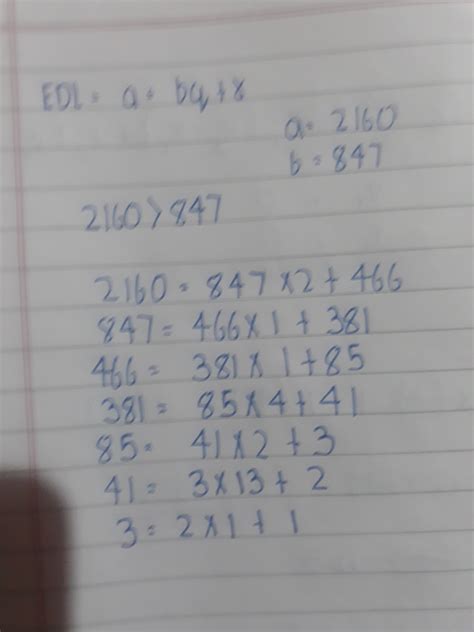 EDL = a = bq + r
a = 2160
b = 847
2160 > 847
2160 = 847 × 2 + 466
847 = 466 × 1 + 381
466 = 381 × 1 + 85
381 = 85 × 4 + 41
85 = 41 × 2 + 3
41 = 3 × 13 + 2
3 = 2 × 1 + 1